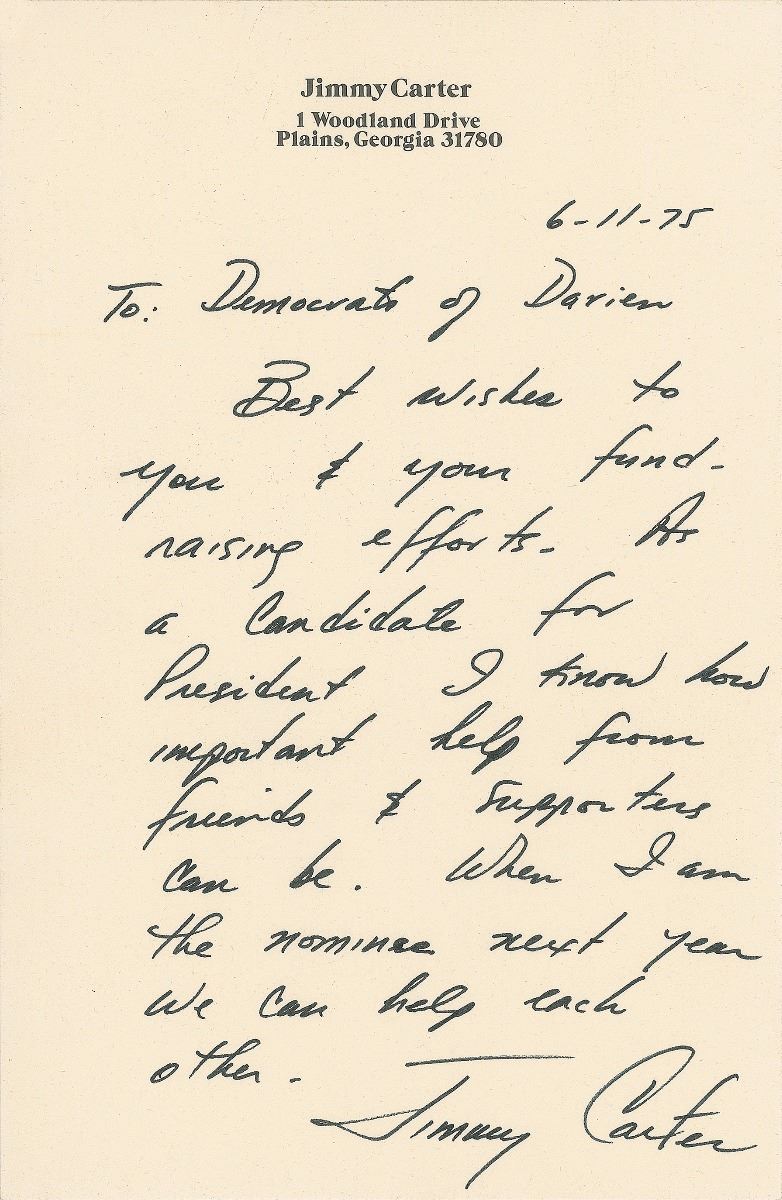 Jimmy Carter
1 Woodland Drive
Plains, Georgia 31780
6-11-75
To: Democrats of Darien
Best wishes to
you & your fund-
raising efforts. As
a candidate for
President I know how
important help from
friends & supporters
can be. When I am
the nominee next year
we can help each
other.
Jimmy Carter